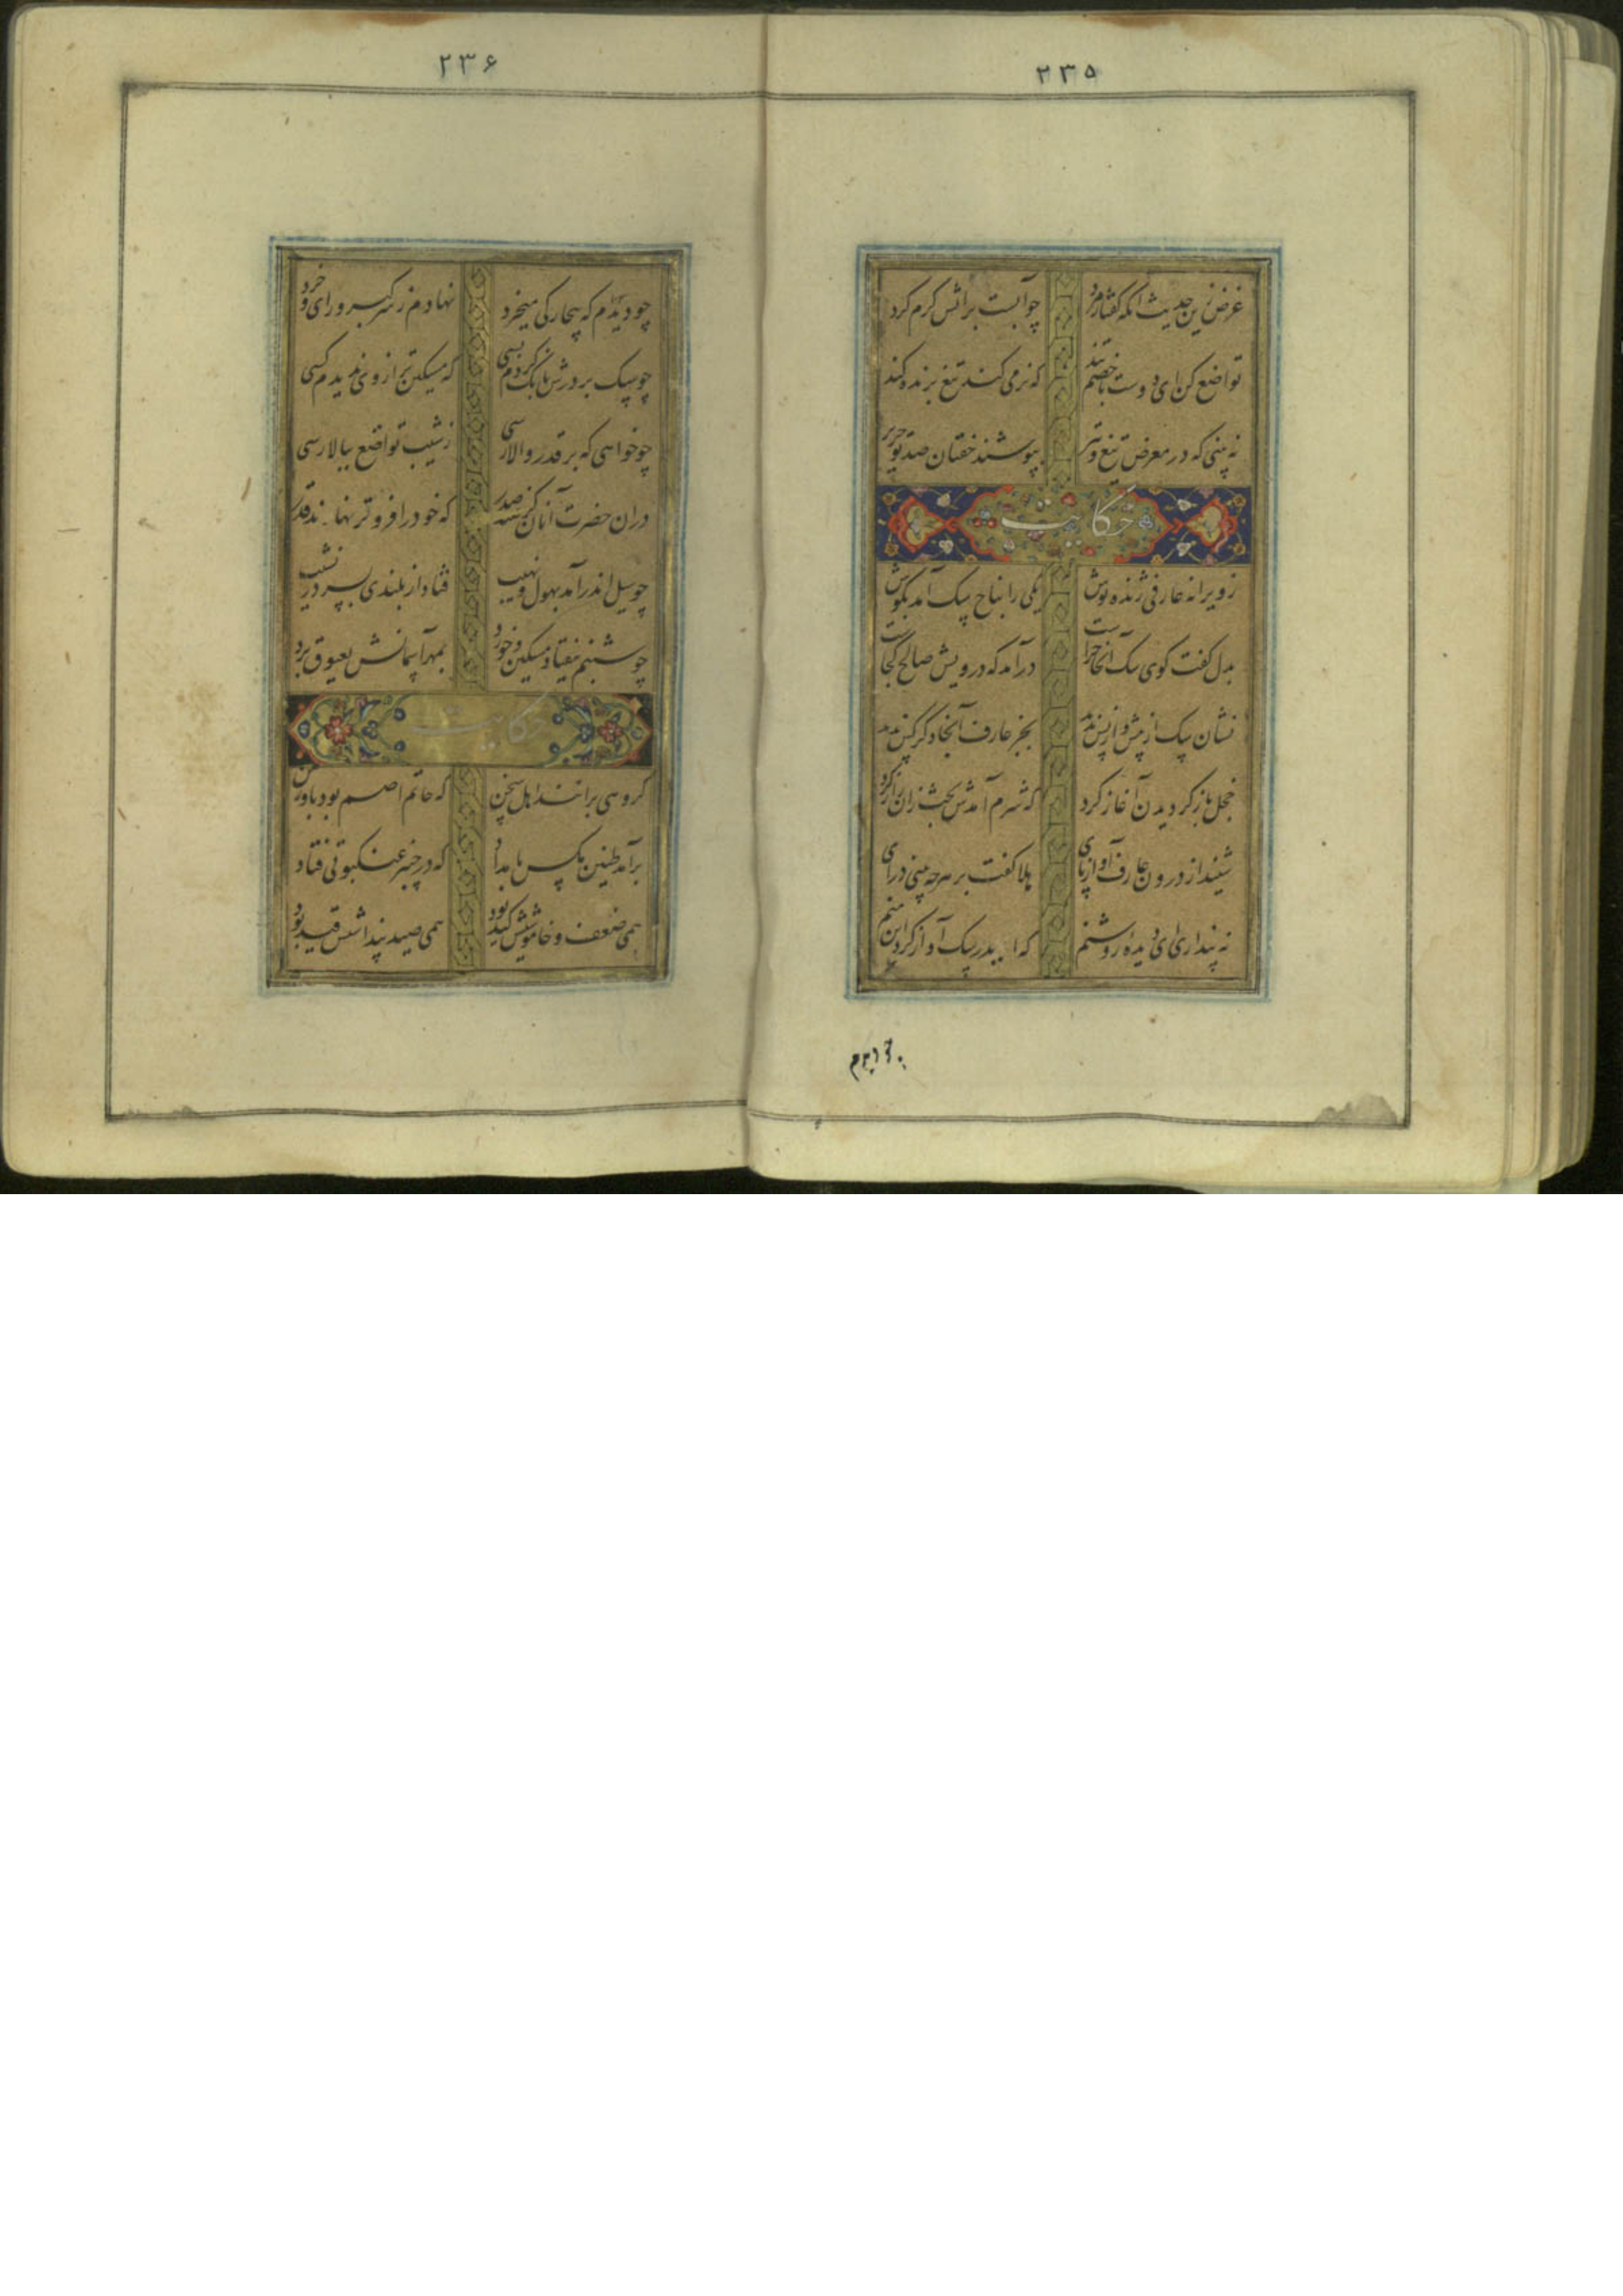 ۲۳۵
غرض زین حدیث انکه گفتار نرم
چو آبست بر اتش گرم کرد
تواضع کن ای دوست با خصم تند
که نرمی کند تیغ برنده کند
نه بینی که در معرض تیغ و تیر
بپوشند خفتان صد تو حریر
حکایت
ز ویرانه عارفی ژنده پوش
یکی را نباح سگ آمد بگوش
بدل گفت گوی سگ آنجا چراست
درآمد که درویش صالح کجاست
نشان سگ از پیش و از پس ندید
بجز عارف آنجا دگر کس ندید
خجل باز گردیدن آغاز کرد
که شرم آمدش بحث زان راز کرد
شنید از درون عارف آواز پای
هلا گفت بر هر چه بینی درای
نه پنداری ای دیده روشنم
که ایدر سگ آواز کرد این منم
۲۳۶
چو دیدم که بیچارگی میخرد
نهادم ز سر کبر و رای و خرد
چو سگ بر درش بانگ کردم بسی
که مسکین تر از وی ندیدم کسی
چو خواهی که بر قدر والا رسی
ز شیب تواضع ببالا رسی
دران حضرت آنان گرفتند صدر
که خود را فروتر نهادند قدر
چو سیل اندر آمد بهول و نهیب
فتاد از بلندی بسر در نشیب
چو شبنم بیفتاد مسکین و خورد
بمهر آسمانش بعیوق برد
حکایت
گروهی برانند اهل سخن
که حاتم اصم بود باور مکن
برآمد طنین مگس بامداد
که در چنبر عنکبوتی فتاد
همی ضعف و خاموشیش کید بود
همی صید پنداشتش قید بود